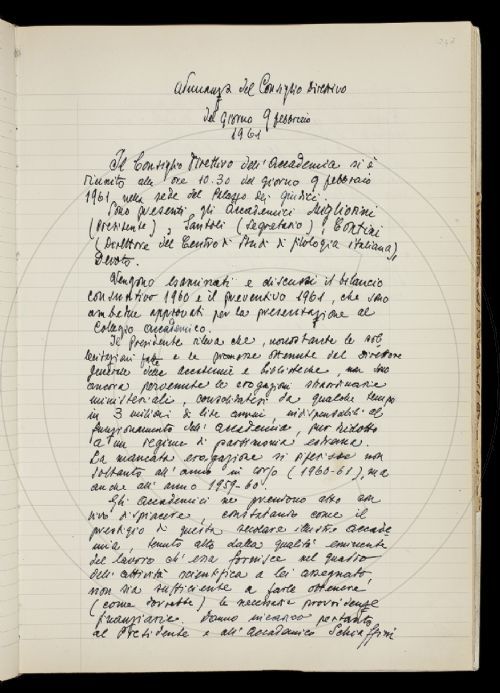 Adunanza del Consiglio Direttivo
del giorno 9 febbraio
1961
Il Consiglio Direttivo dell'Accademia si è
riunito alle ore 10.30 del giorno 9 febbraio
1961 nella sede del Palazzo dei Giudici.
Sono presenti gli Accademici Migliorini
(Presidente), Santoli (Segretario), Contini
(Direttore del Centro di Studi di filologia italiana),
Devoto.
Vengono esaminati e discussi il bilancio
consuntivo 1960 e il preventivo 1961, che sono
ambedue approvati per la presentazione al
Collegio Accademico.
Il Presidente rileva che, nonostante le sol-
lecitazioni fatte e le promesse ottenute dal Direttore
generale delle accademie e biblioteche, non sono
ancora pervenute le erogazioni straordinarie
ministeriali, consolidatesi da qualche tempo
in 3 milioni di lire annui, indispensabili al
funzionamento dell'Accademia, pur ridotto
a un regime di parsimonia estrema.
La mancata erogazione si riferisce non
soltanto all'anno in corso (1960-61), ma
anche all'anno 1959-60.
Gli Accademici ne prendono atto con
vivo dispiacere, constatando come il
prestigio di questa secolare illustre Accade-
mia, tenuto alto dalla qualità eminente
del lavoro ch'essa fornisce nel quadro
dell'attività scientifica a lei assegnato,
non sia sufficiente a farle ottenere
(come dovrebbe) le necessarie provvidenze
finanziarie. Danno incarico pertanto
al Presidente e all'Accademico Schiaffini